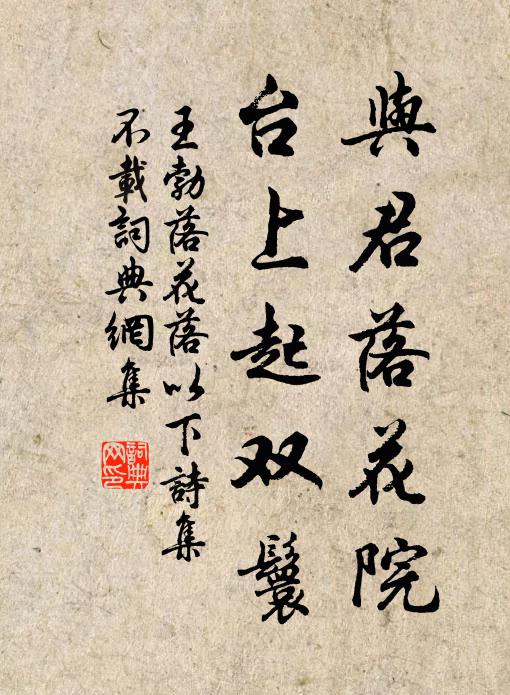 與君落花院
台上起双鬟
王勃落花落以下詩集
不載詞典網集
詞典
网印